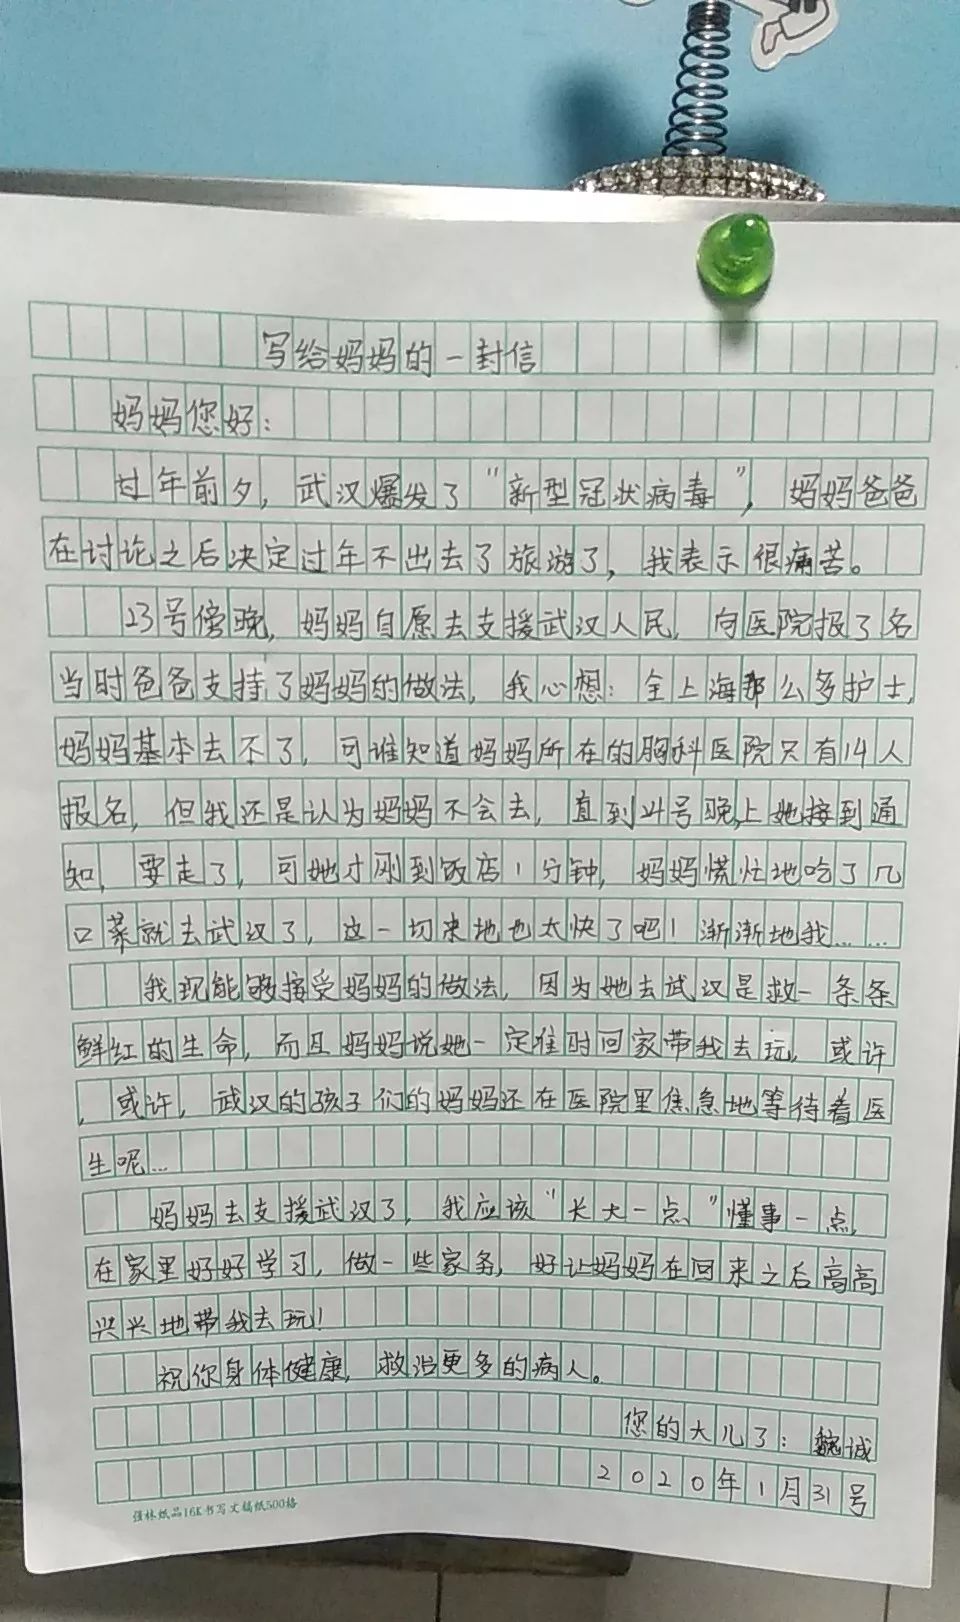 写给妈妈的一封信
妈妈您好：
过年前夕，武汉爆发了“新型冠状病毒”，妈妈爸爸
在讨论之后决定过年不出去了旅游了，我表示很痛苦。
23号傍晚，妈妈自愿去支援武汉人民，向医院报了名
当时爸爸支持了妈妈的做法，我心想：全上海那么多护士，
妈妈基本去不了，可谁知道妈妈所在的胸科医院只有14人
报名，但我还是认为妈妈不会去，直到24号晚上她接到通
知，要走了，可她才刚到饭店1分钟，妈妈慌忙地吃了几
口菜就去武汉了，这一切来地也太快了吧！渐渐地我……
我现能够接受妈妈的做法，因为她去武汉是救一条条
鲜红的生命，而且妈妈说她一定准时回家带我去玩，或许
，或许，武汉的孩子们的妈妈还在医院里焦急地等待着医
生呢…
妈妈去支援武汉了，我应该“长大一点，”懂事一点，
在家里好好学习，做一些家务，好让妈妈在回来之后高高
兴兴地带我去玩！
祝你身体健康，救治更多的病人。
您的大儿子：魏诚
2020年1月31号
强林纸品16K书写文稿纸500格